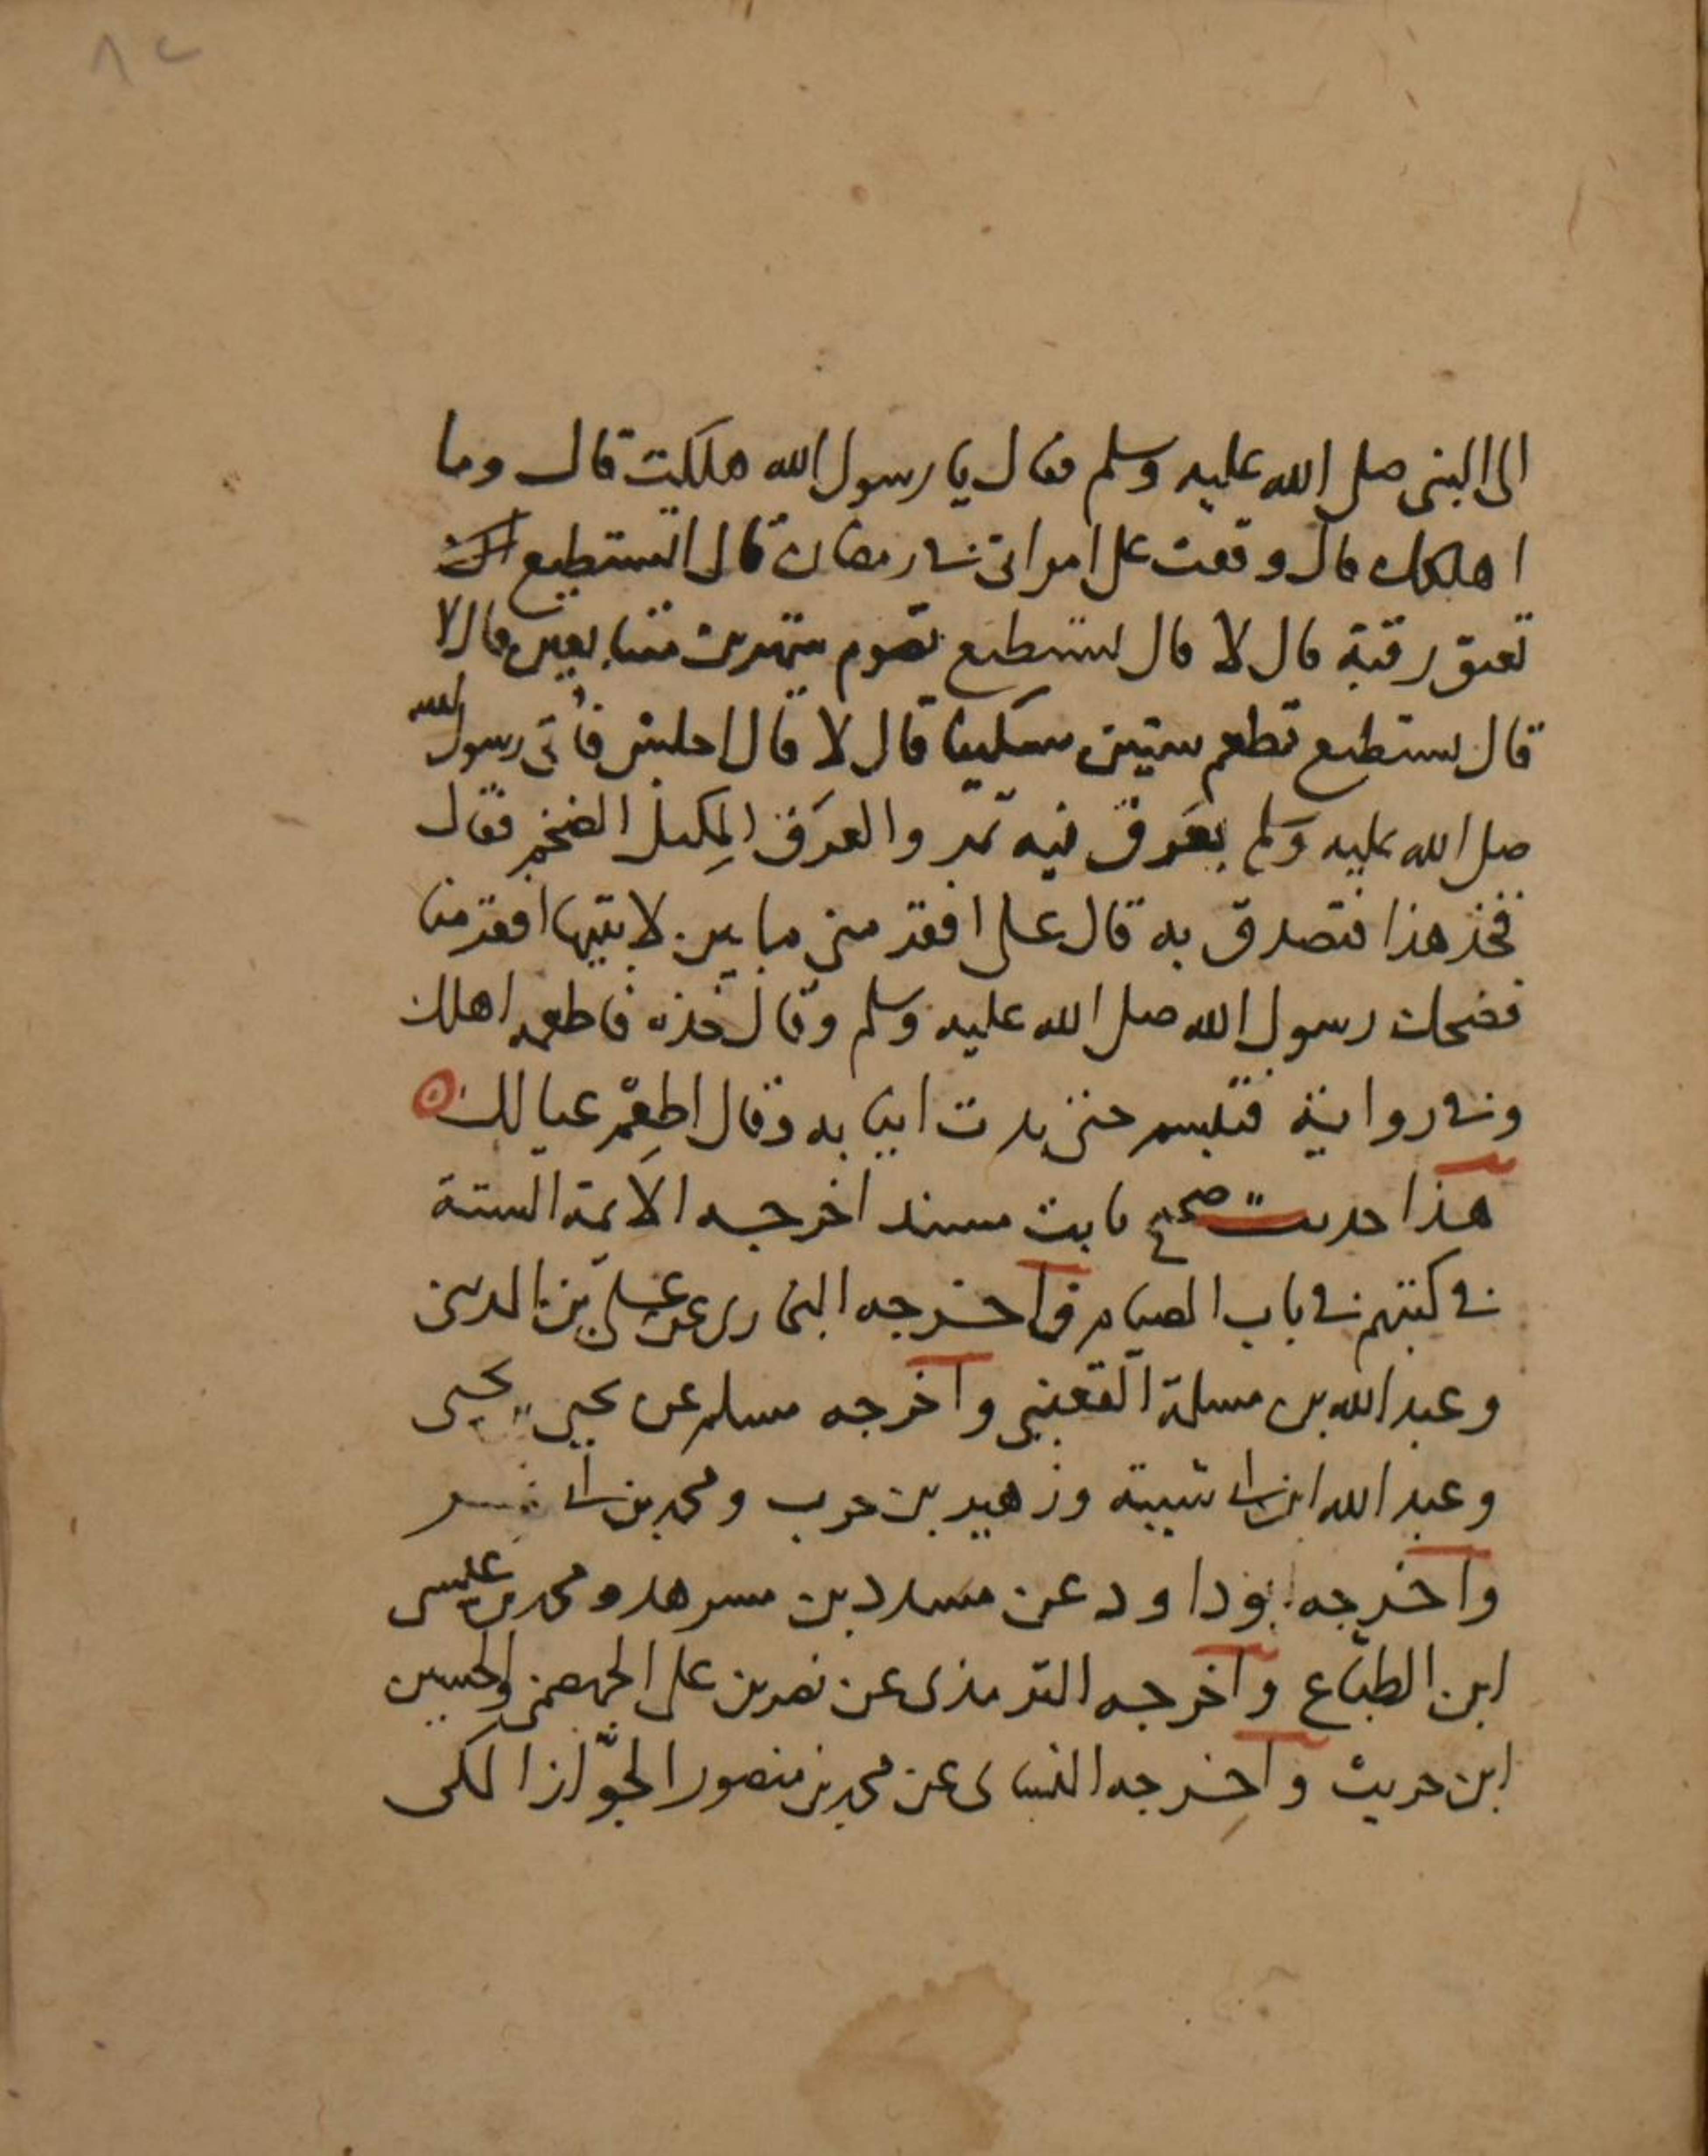 ٨٢
الى النبى صلى الله عليه وسلم فقال يا رسول الله هلكت قال وما
اهلكك قال وقعت على امراتى فى رمضان قال اتستطيع ان
تعتق رقبة قال لا قال تستطيع تصوم شهرين متتابعين قال لا
قال تستطيع تطعم ستين مسكينا قال لا قال اجلس فأتى رسول الله
صلى الله عليه وسلم بعَرَق فيه تمر والعرَق المِكتل الضخم فقال
فخذ هذا فتصدق به قال على افقر منى ما بين لابتيها افقر منا
فضحك رسول الله صلى الله عليه وسلم وقال خذه فاطعمه اهلك
وفى رواية فتبسم حتى بدت انيابه وقال اطعِمْ عيالك
هذا حديث صحيح ثابت مسند اخرجه الايمة الستة
فى كتبهم فى باب الصيام فاخرجه البخارى عن على بن المدينى
وعبد الله بن مسلمة القعنبى واخرجه مسلم عن يحيى بن يحيى
وعبد الله ابن ابى شيبة وزهير بن حرب ومحمد بن ابى
واخرجه ابو داود عن مسدد بن مسرهد ومحمد بن عيسى
ابن الطباع واخرجه الترمذى عن نصر بن على الجهضمى والحسين
ابن حريث واخرجه النساى عن محمد بن منصور الجوّاز المكى